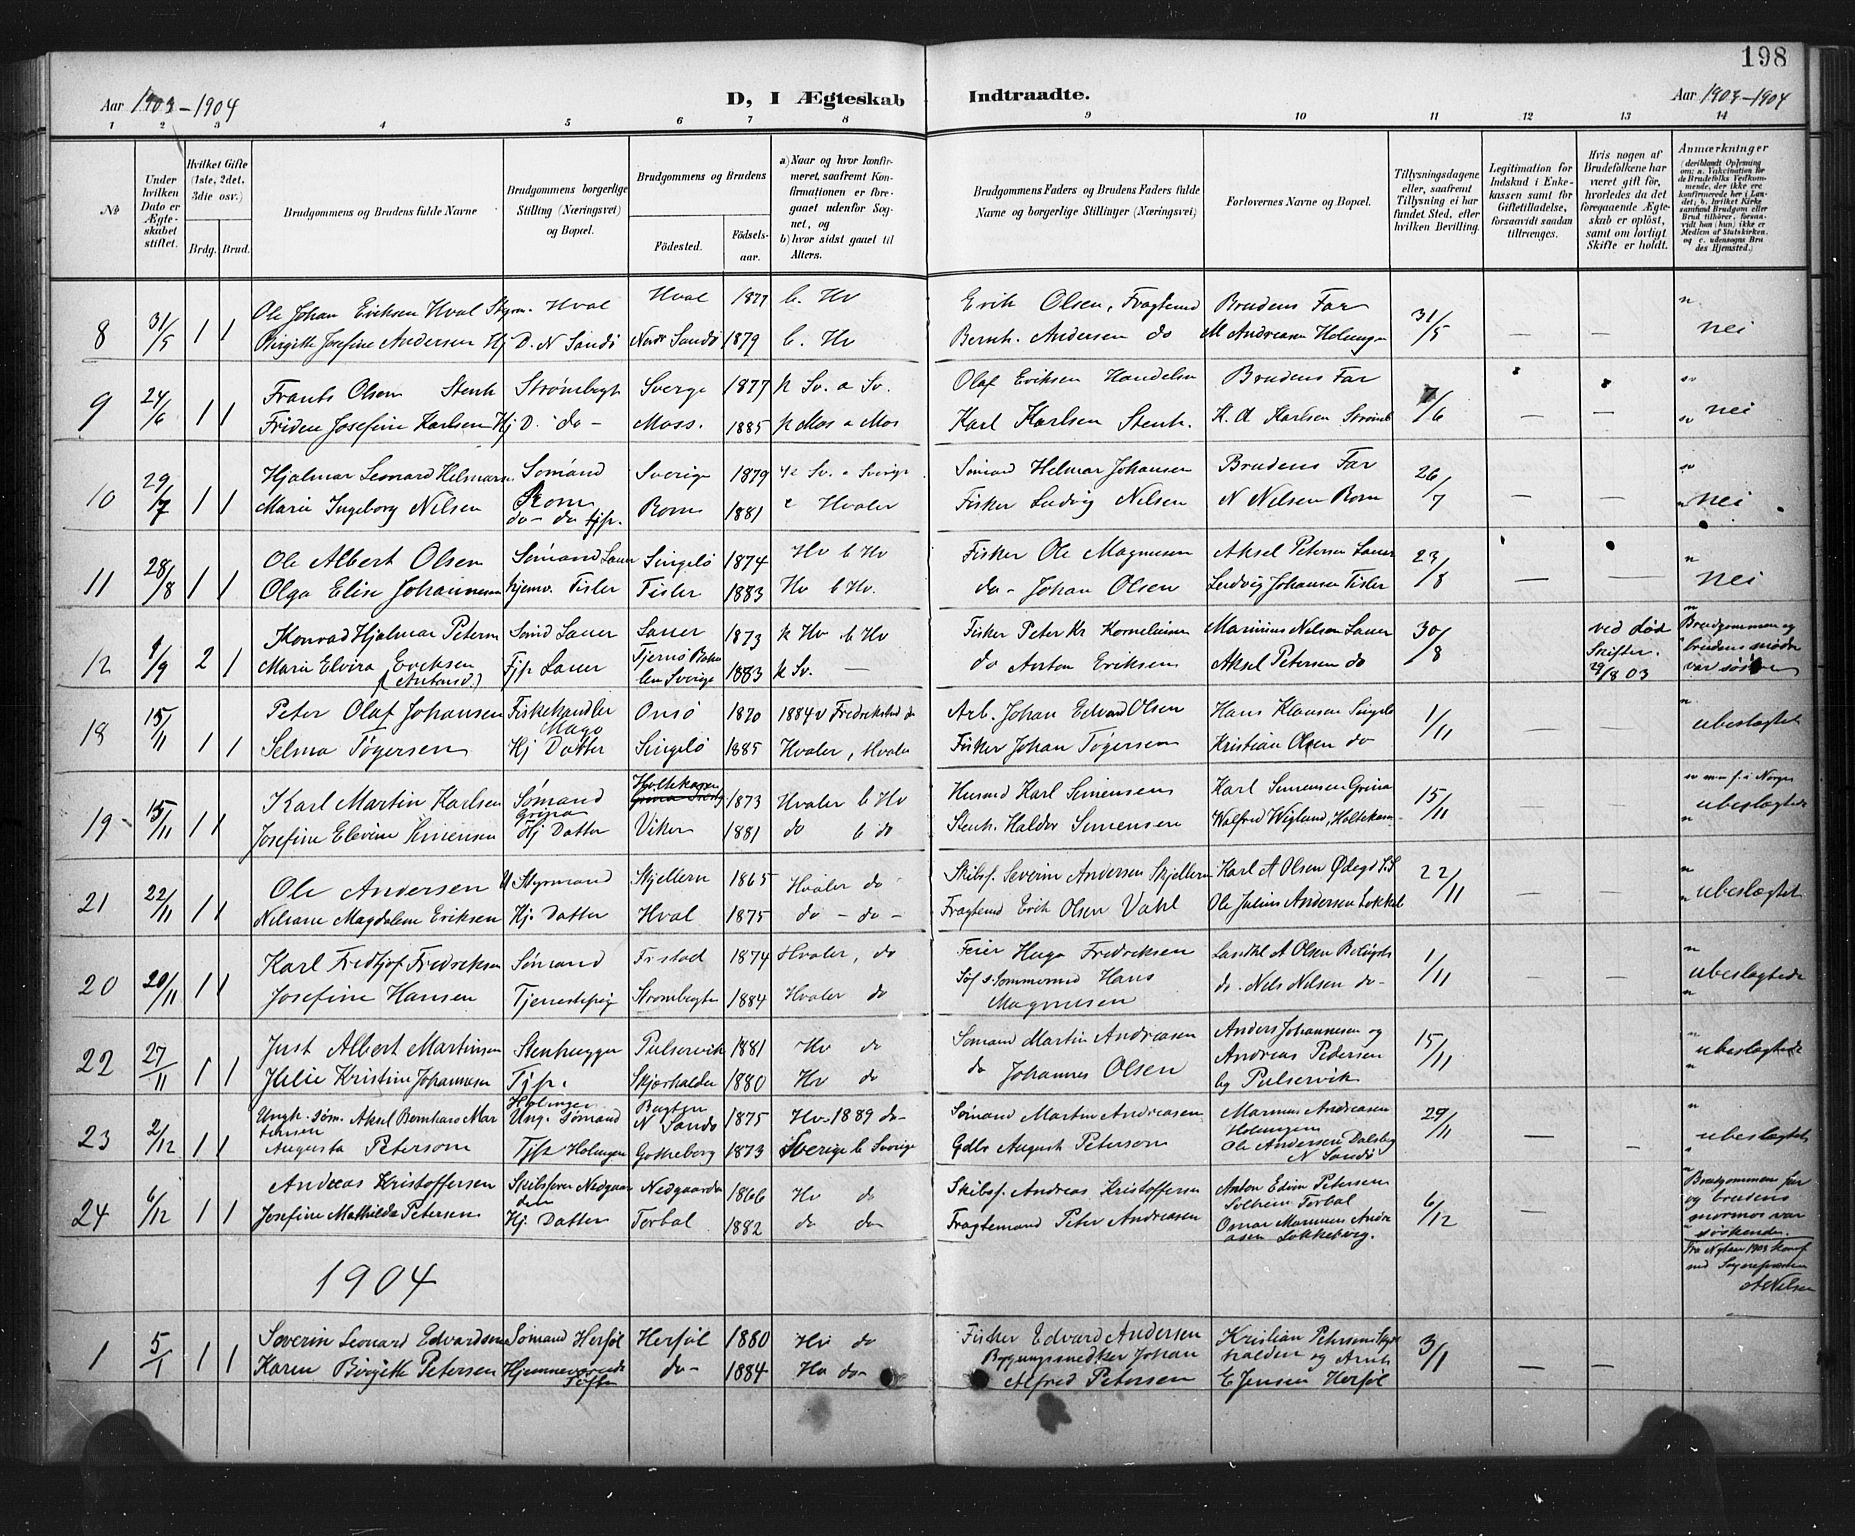 198
Aar 1903-1904 D, I Ægteskab Indtraadte. Aar 1903-1904
1 2 3 4 5 6 7 8 9 10 11 12 13 14
№
Under hvilken Dato er Ægteskabet stiftet.
Hvilket Gifte (1ste, 2det, 3die osv.)
Brdg. Brud.
Brudgommens og Brudens fulde Navne
Brudgommens borgerlige Stilling (Næringsvei) og Bopæl.
Brudgommens og Brudens
Fødested. Fødselsaar.
a) Naar og hvor konfirmeret, saafremt Konfirmationen er foregaaet udenfor Sognet, og b) hvor sidst gaaet til Alters.
Brudgommens Faders og Brudens Faders fulde Navne og borgerlige Stillinger (Næringsvei)
Forlovernes Navne og Bopæl.
Tillysningsdagene eller, saafremt Tillysning ei har fundet Sted, efter hvilken Bevilling.
Legitimation for Indskud i Enkekassen samt for Giftetilladelse, forsaavidt saadan tiltrænges.
Hvis nogen af Brudefolkene har været gift før, hvorledes da det foregaaende Ægteskab er opløst, samt om lovligt Skifte er holdt.
Anmærkninger
8 31/5 1 1 Ole Johan Eriksen Hval Styrm. Hval Hval 1877 b. Hv Erik Olsen, Fragtemd Brudens Far 31/5 — — nei
Birgitte Josefine Andersen Hj D. N Sandø Nordr Sandø 1879 b. Hv Bernh. Andersen do M Andreasen Holmgen
9 24/6 1 1 Frants Olsen Stenh Strømbugt Sverge 1877 k Sv. a Sv. Olaf Eriksen Handelsm Brudens Far 7/6 — — nei
Josefine Karlsen Hj D. do- Moss. 1885 k Mos a Mos Karl Karlsen Stenh. K. A Karlsen
10 29/7 1 1 Hjalmar Leonard Helmersen Sømand Rom Sverige 1879 Sv. a Sverige Sømand Helmar Johansen Brudens Far 26/7 — — nei
Marie Ingeborg Nilsen do- do tjp. Rom 1881 Hvaler Fisker Ludvig Nilsen N Nilsen Rom
11 28/8 1 1 Ole Albert Olsen Sømand Lauer Singelø 1874 Hv b Hv Fisker Ole Magnusen Aksel Petersen Lauer 23/8 — — nei
Olga Elise Johannesen hjemv. Tisler Tisler 1883 Hv b Hv. do- Johan Olsen Ludvig Johansen Tisler
12 /9 2 1 Konrad Hjalmar Petersen Sømd Lauer Lauer 1873 k Hv b Hv Fisker Peter Kr Korneliusen Marinius Nilsen Lauer 30/8 ved død Skifter. 29/8 03 Brudgommen og brudens
Marie Elvira Eriksen (Antonsd.) Tjp Lauer Tjernø Sverige 1883 k Sv. — do Anton Eriksen Aksel Petersen do
18 15/11 1 1 Peter Olaf Johansen Fiskehandler Onsø 1870 1884 v Fredrikstad do Arb. Johan Edvard Olsen Hans Klausen Singelø 1/11 — — ubeslægtet
Selma Tøgersen Hj Datter Singelø 1885 Hvaler, Hvaler Fisker Johan Tøgersen Kristian Olsen do
19 15/11 1 1 Karl Martin Karlsen Sømand Grina 1873 Hvaler b Hv Husmd Karl Simensens Karl Simensen Grina 15/11 — — ubeslægtede
Josefine Elevine Simensen Hj Datter Viker 1881 do b do Stenh. Haldor Simensen Walfred Wiglund,
21 22/11 1 1 Ole Andersen Styrmand Skjellern 1865 Hvaler do Skibsf. Severin Andersen Skjellern Karl A Olsen Ødegd 22/11 — — ubeslægtet
Nelsane Magdalene Eriksen Hj. Datter Hval 1875 do - do - Fragtemd Erik Olsen Vahl Ole Julius Andersen Løkkeb
20 20/11 1 1 Karl Fredtjof Fredriksen Sømand Fristad 1874 Hvaler, do Feier Hugo Fredriksen Landhl A Olsen 1/11 — — ubeslægtede
Josefine Hansen Tjenestepig Strømbugten 1884 Hvaler do Hans Magnusen do. Nels Nelsen do-
22 27/11 1 1 Just Albert Martinsen Stenhugger Pulservik 1881 Hv do Sømand Martin Andreasen Anders Johannesen og 15/11 ubeslægtede
Julie Kristine Johannesen Tjp. Skjærhalden 1880 Hv do do Johannes Olsen Andreas Pedersen bg Pulservik
23 2/12 1 1 Ungk. søm. Aksel Bernhard Martinsen Holmgen Ung. Sømand N Sandø 1875 Hv. 1889 do- Sømand Martin Andreasen Marinus Andreasen Holmgen 29/11 — — ubeslægtet
Augusta Peterson Tjp Holmgen Gotheborg 1873 Sverige b Sverige Gdbr August Peterson Ole Andersen Dalsbeg N Sandø
24 6/12 1 1 Andreas Kristoffersen Skibsfører Nedgaarden Nedgaarden 1866 Hv do Skibsf. Andreas Kristoffersen Anton Edvin Petersen Solheim Torbal 6/12 — Brudgommens far og brudens mormor var søskende.
Josefine Mathilde Petersen Hj. Datter Torbal 1882 do do Fragtemand Peter Andreasen Omar Marinus Andreasen Løkkeberg.
1904
Fra Nytaar 1903 konf med Sognepræsten A Nilsen
1 5/1 1 1 Severin Leonard Edvardsen Sømand Herføl Herføl 1880 Hv do Fisker Edvard Andersen Kristian Petersen Skjærhalden og Arnt 3/1 — —
Karen Birgitte Petersen Hjemmeværende do- 1884 Hv do- Bygningssnedker Johan Alfred Petersen E Jensen Herføl